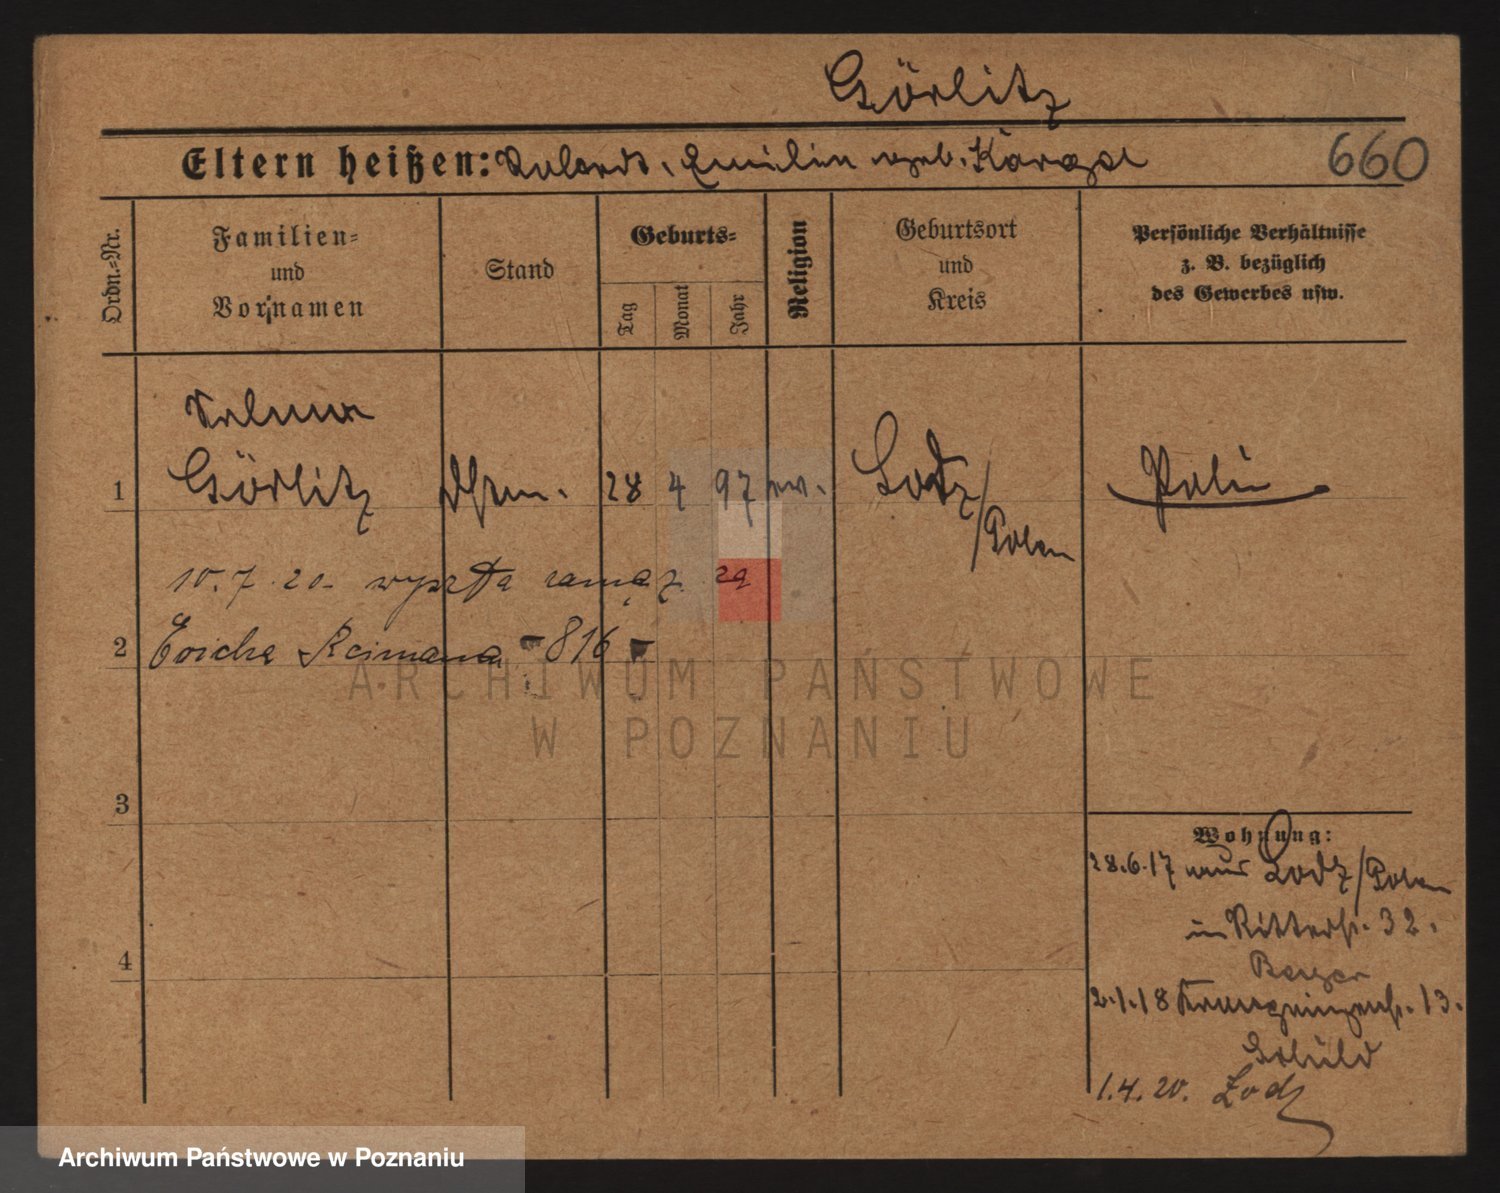 Görlitz
Eltern heißen: Emilie geb. Karge
660
Ordn.-Nr.
Familien-
und
Vornamen
Stand
Geburts-
Tag
Monat
Jahr
Religion
Geburtsort
und
Kreis
Persönliche Verhältnisse
z. B. bezüglich
des Gewerbes usw.
Selma
1 Görlitz 28 4 97 ev. Lodz
/Polen
10.7.20. wyszła zamąż za
2 Ericha Reimana - 816 -
ARCHIWUM PAŃSTWOWE
W POZNANIU
3
Wohnung:
28.6.17 aus Lodz/Polen
in Ritterstr. 32.
Berger
4
2.1.18 Kronprinzenstr. 13.
1.4.20. Lodz
Archiwum Państwowe w Poznaniu